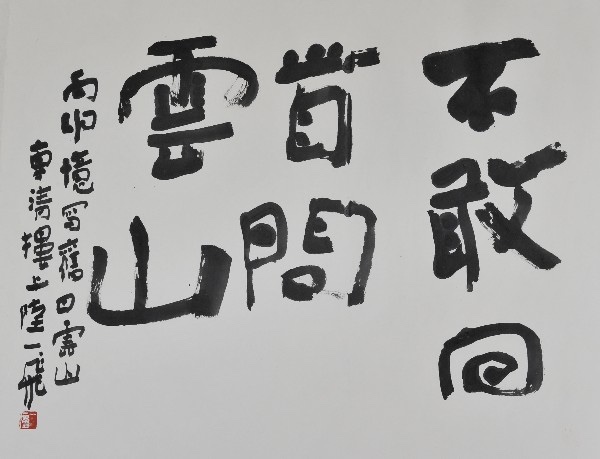 不敢回
首問
雲山
丙申憶寫舊日雲山
東清樓上陸一飛